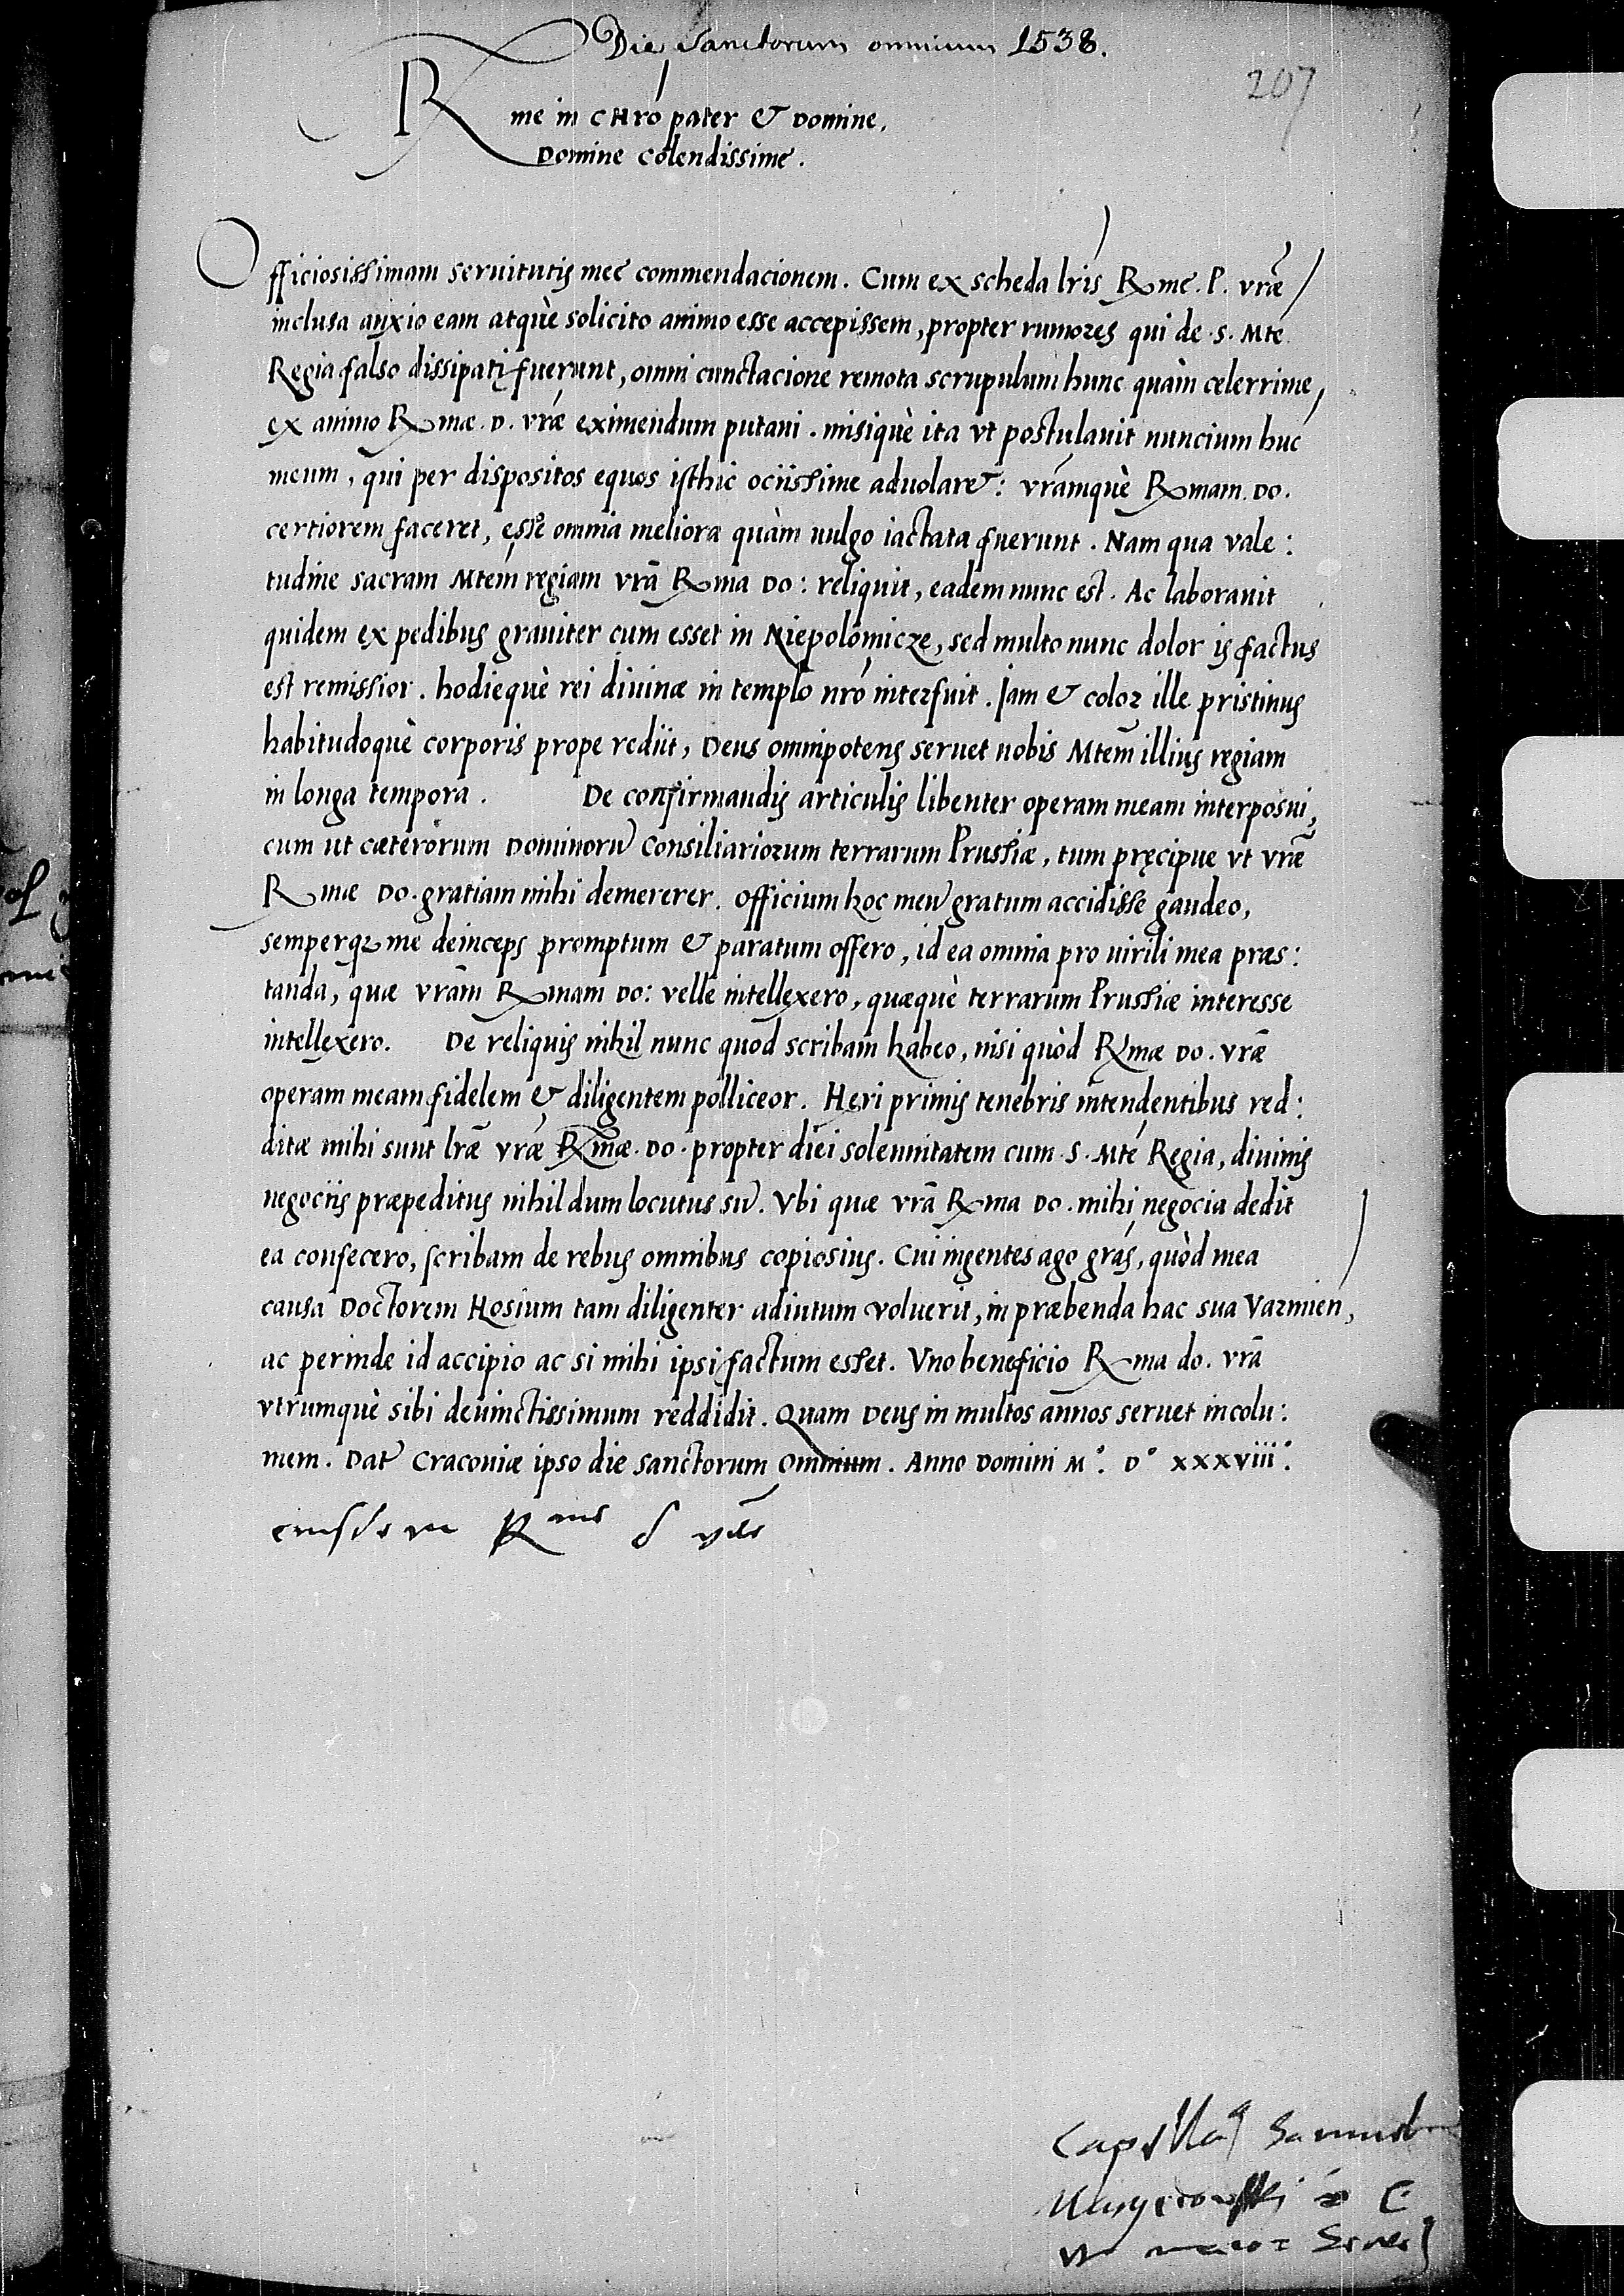 Die Sanctorum omnium 1538.
207
Rme in CHRO pater & Domine,
Domine colendissime.
Officiosissimam seruitutis meę commendacionem. Cum ex scheda lris Rme. P. vrae
inclusa anxio eam atquè solicito animo esse accepissem, propter rumores qui de .S. Mte
Regia falso dissipati fuerunt, omni cunctacione remota scrupulum hunc quàm celerrime,
ex animo Rmae. D. vrae eximendum putaui. misiquè ita vt postulauit nuncium huc
meum, qui per dispositos equos isthic ociissime aduolaret: vramquè Rmam. Do.
certiorem faceret, esse omnia meliora quàm uulgo iactata fuerunt. Nam qua vale:
tudine sacram Mtem regiam vra Rma Do: reliquit, eadem nunc est. Ac laborauit
quidem ex pedibus grauiter cum esset in Niepolomicze, sed multo nunc dolor is factus
est remissior. hodiequè rei diuinae in templo nro interfuit. Jam & color ille pristinus
habitudoquè corporis prope rediit, Deus omnipotens seruet nobis Mtem illius regiam
in longa tempora. De confirmandis articulis libenter operam meam interposui,
cum ut caeterorum Dominorū Consiliariorum terrarum Prussiae, tum pręcipue vt vrae
Rmae Do. gratiam mihi demererer. Officium hoc meū gratum accidisse gaudeo,
semperqz me deinceps promptum & paratum offero, id ea omnia pro uirili mea praes:
tanda, quae vram Rmam Do: velle intellexero, quaequè terrarum Prussiae interesse
intellexero. De reliquis nihil nunc quod scribam habeo, nisi quòd Rmae Do. vrae
operam meam fidelem & diligentem polliceor. Heri primis tenebris intendentibus red:
ditae mihi sunt lrae vrae Rmae. Do. propter diei solennitatem cum .S. Mte Regia, diuinis
negociis praepeditus nihil dum locutus sū. Vbi quae vra Rma Do. mihi negocia dedit
ea confecero, scribam de rebus omnibus copiosius. Cui ingentes ago gras, quòd mea
causa Doctorem Hosium tam diligenter adiutum voluerit, in praebenda hac sua Varmien,
ac perinde id accipio ac si mihi ipsi factum esset. Vno beneficio Rma do. vra
vtrumquè sibi deuinctissimum reddidit. Quam Deus in multos annos seruet incolu:
mem. Dat Craconiae ipso die sanctorum Omnium. Anno Domini M°. D° xxxviii°.
eiusdem Rme d vre
Capellan Samuel